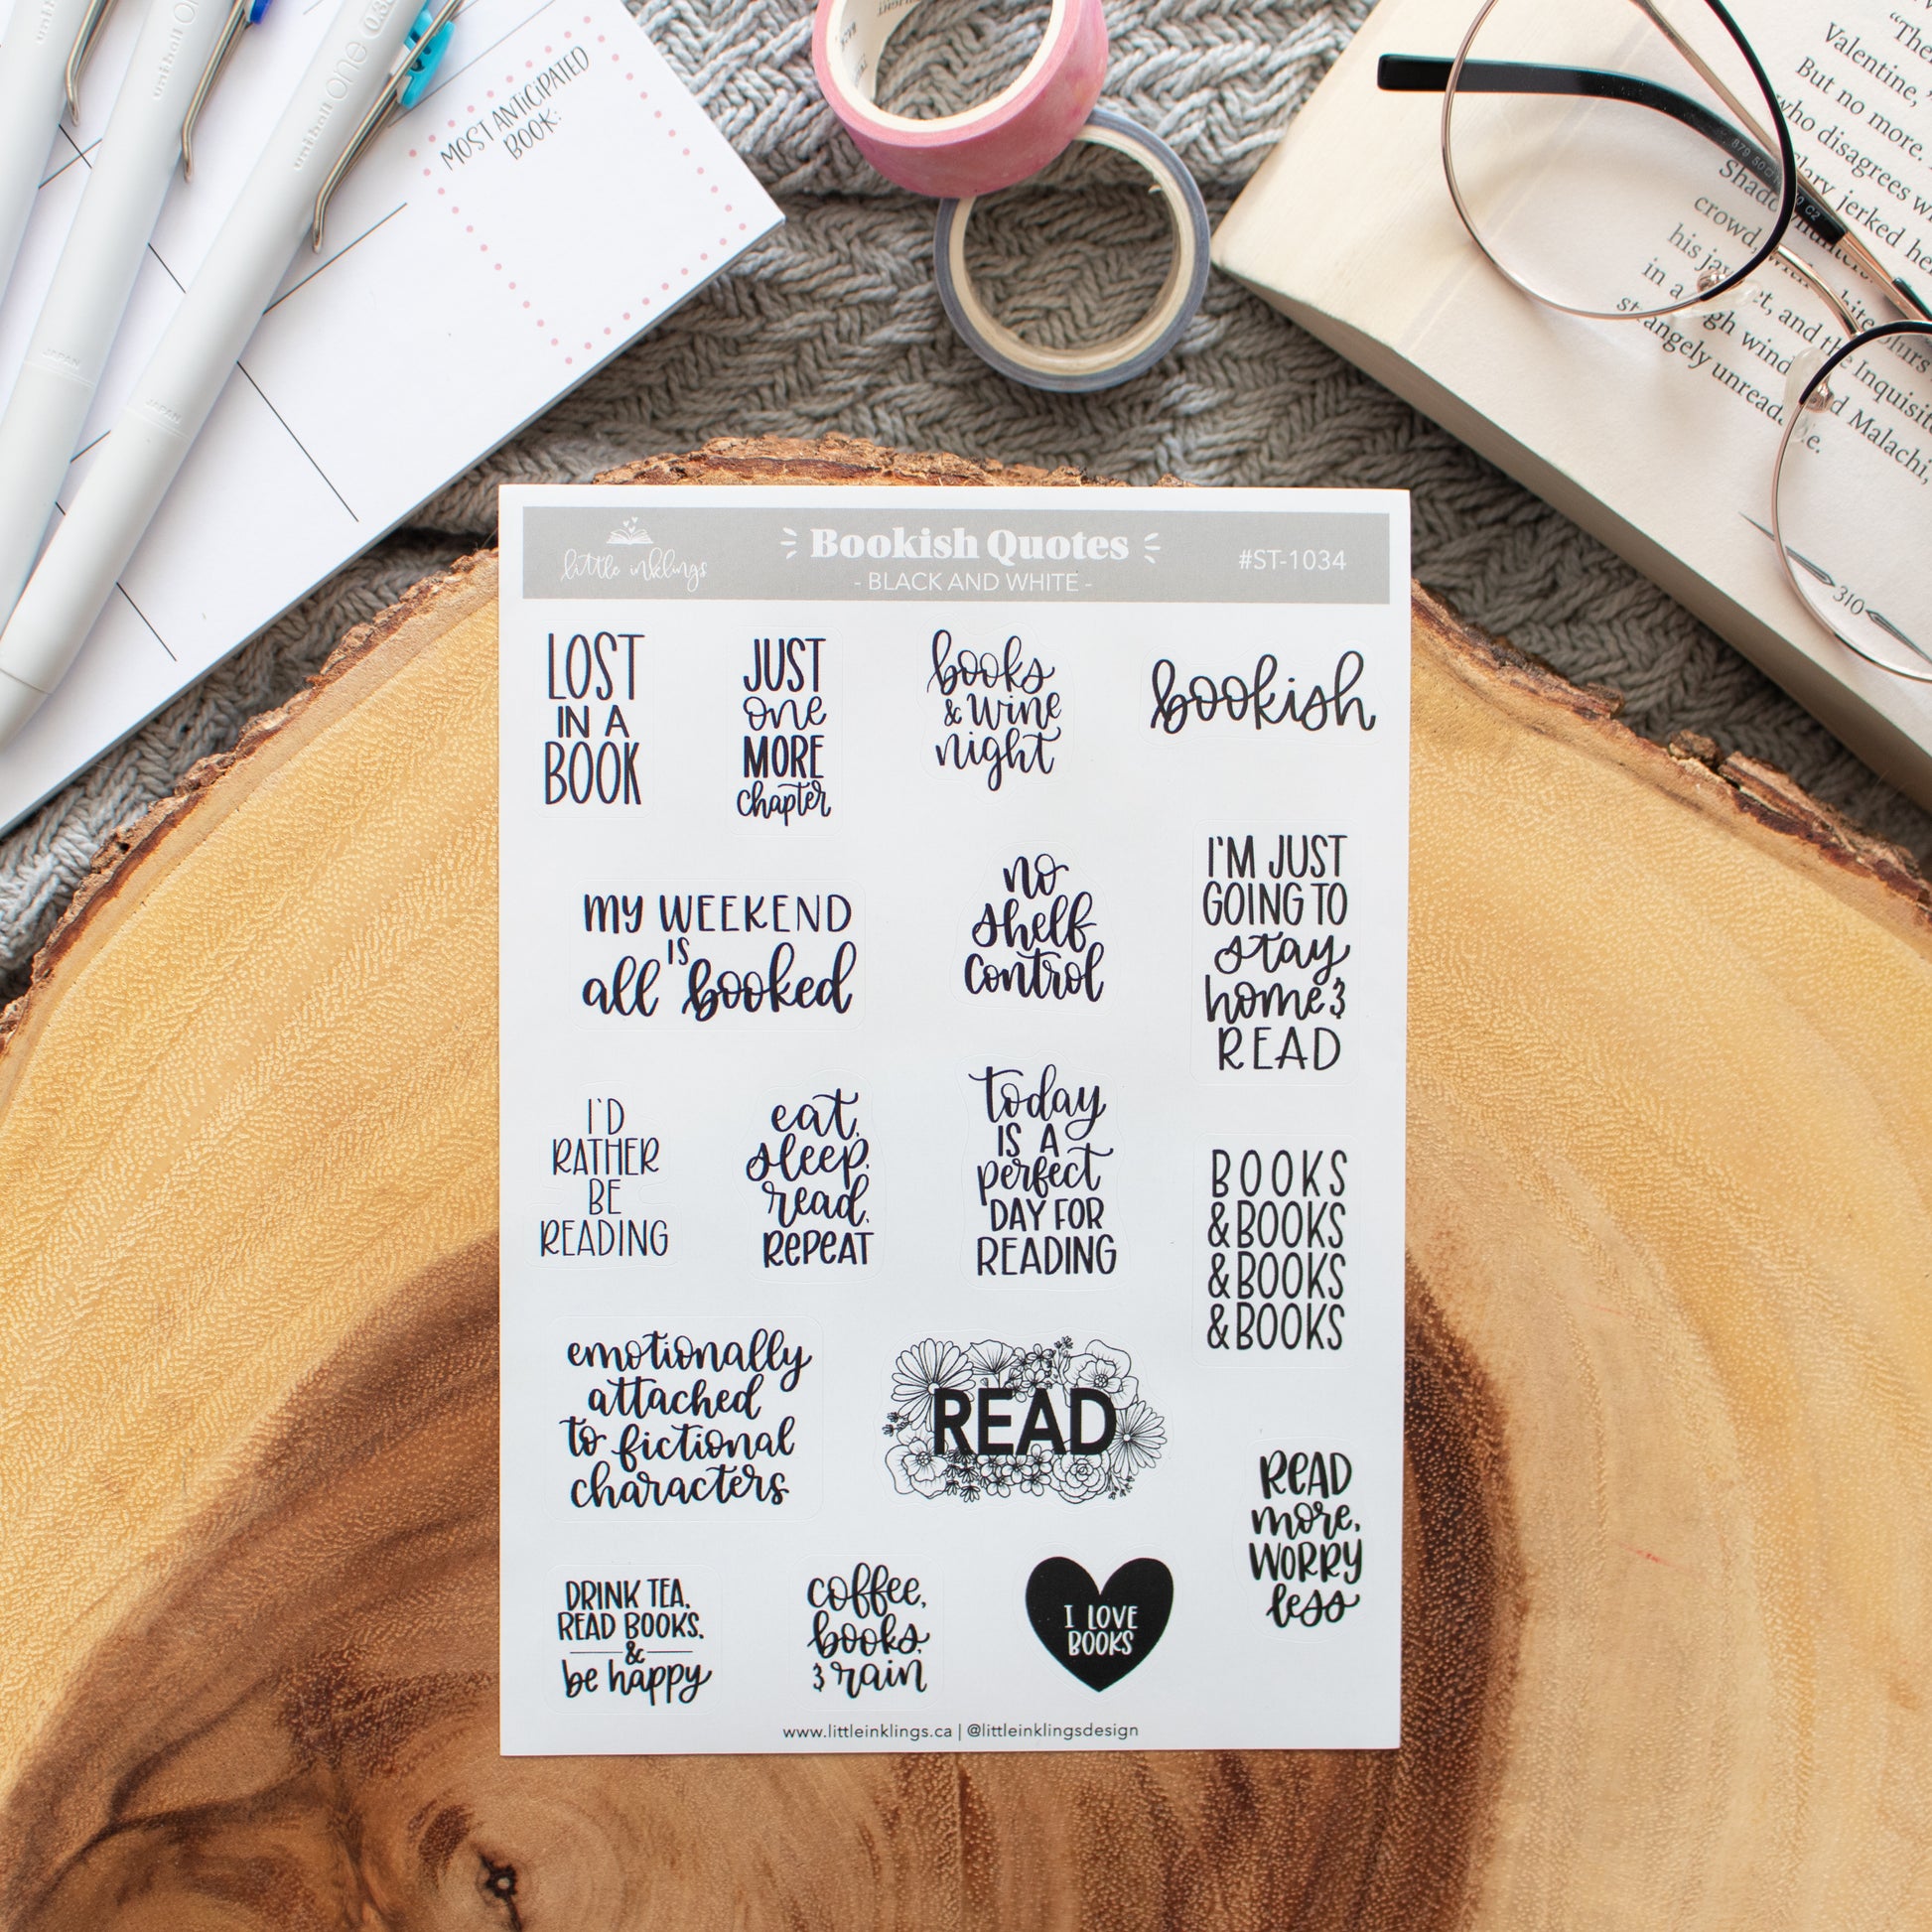 uniball one 0.38
uniball one
uniball
JAPAN
JAPAN
MOST ANTICIPATED
BOOK:
"The
Valentine,
But no more.
who disagrees
jerked he
crowd,
his
in a
and the Inquisit
wind
d Malachi,
strangely
310
879 50
C2
little inklings
Bookish Quotes
- BLACK AND WHITE -
#ST-1034
LOST
IN A
BOOK
JUST
one
MORE
chapter
books
& wine
night
bookish
my WEEKEND
IS
all booked
no
shelf
control
I'M JUST
GOING TO
stay
home &
READ
I'D
RATHER
BE
READING
eat.
sleep.
read.
REPEAT
today
IS A
perfect
DAY FOR
READING
BOOKS
& BOOKS
& BOOKS
& BOOKS
emotionally
attached
to fictional
characters
READ
READ
more,
WORRY
less
DRINK TEA.
READ BOOKS.
&
be happy
coffee,
books,
& rain
I LOVE
BOOKS
www.littleinklings.ca | @littleinklingsdesign